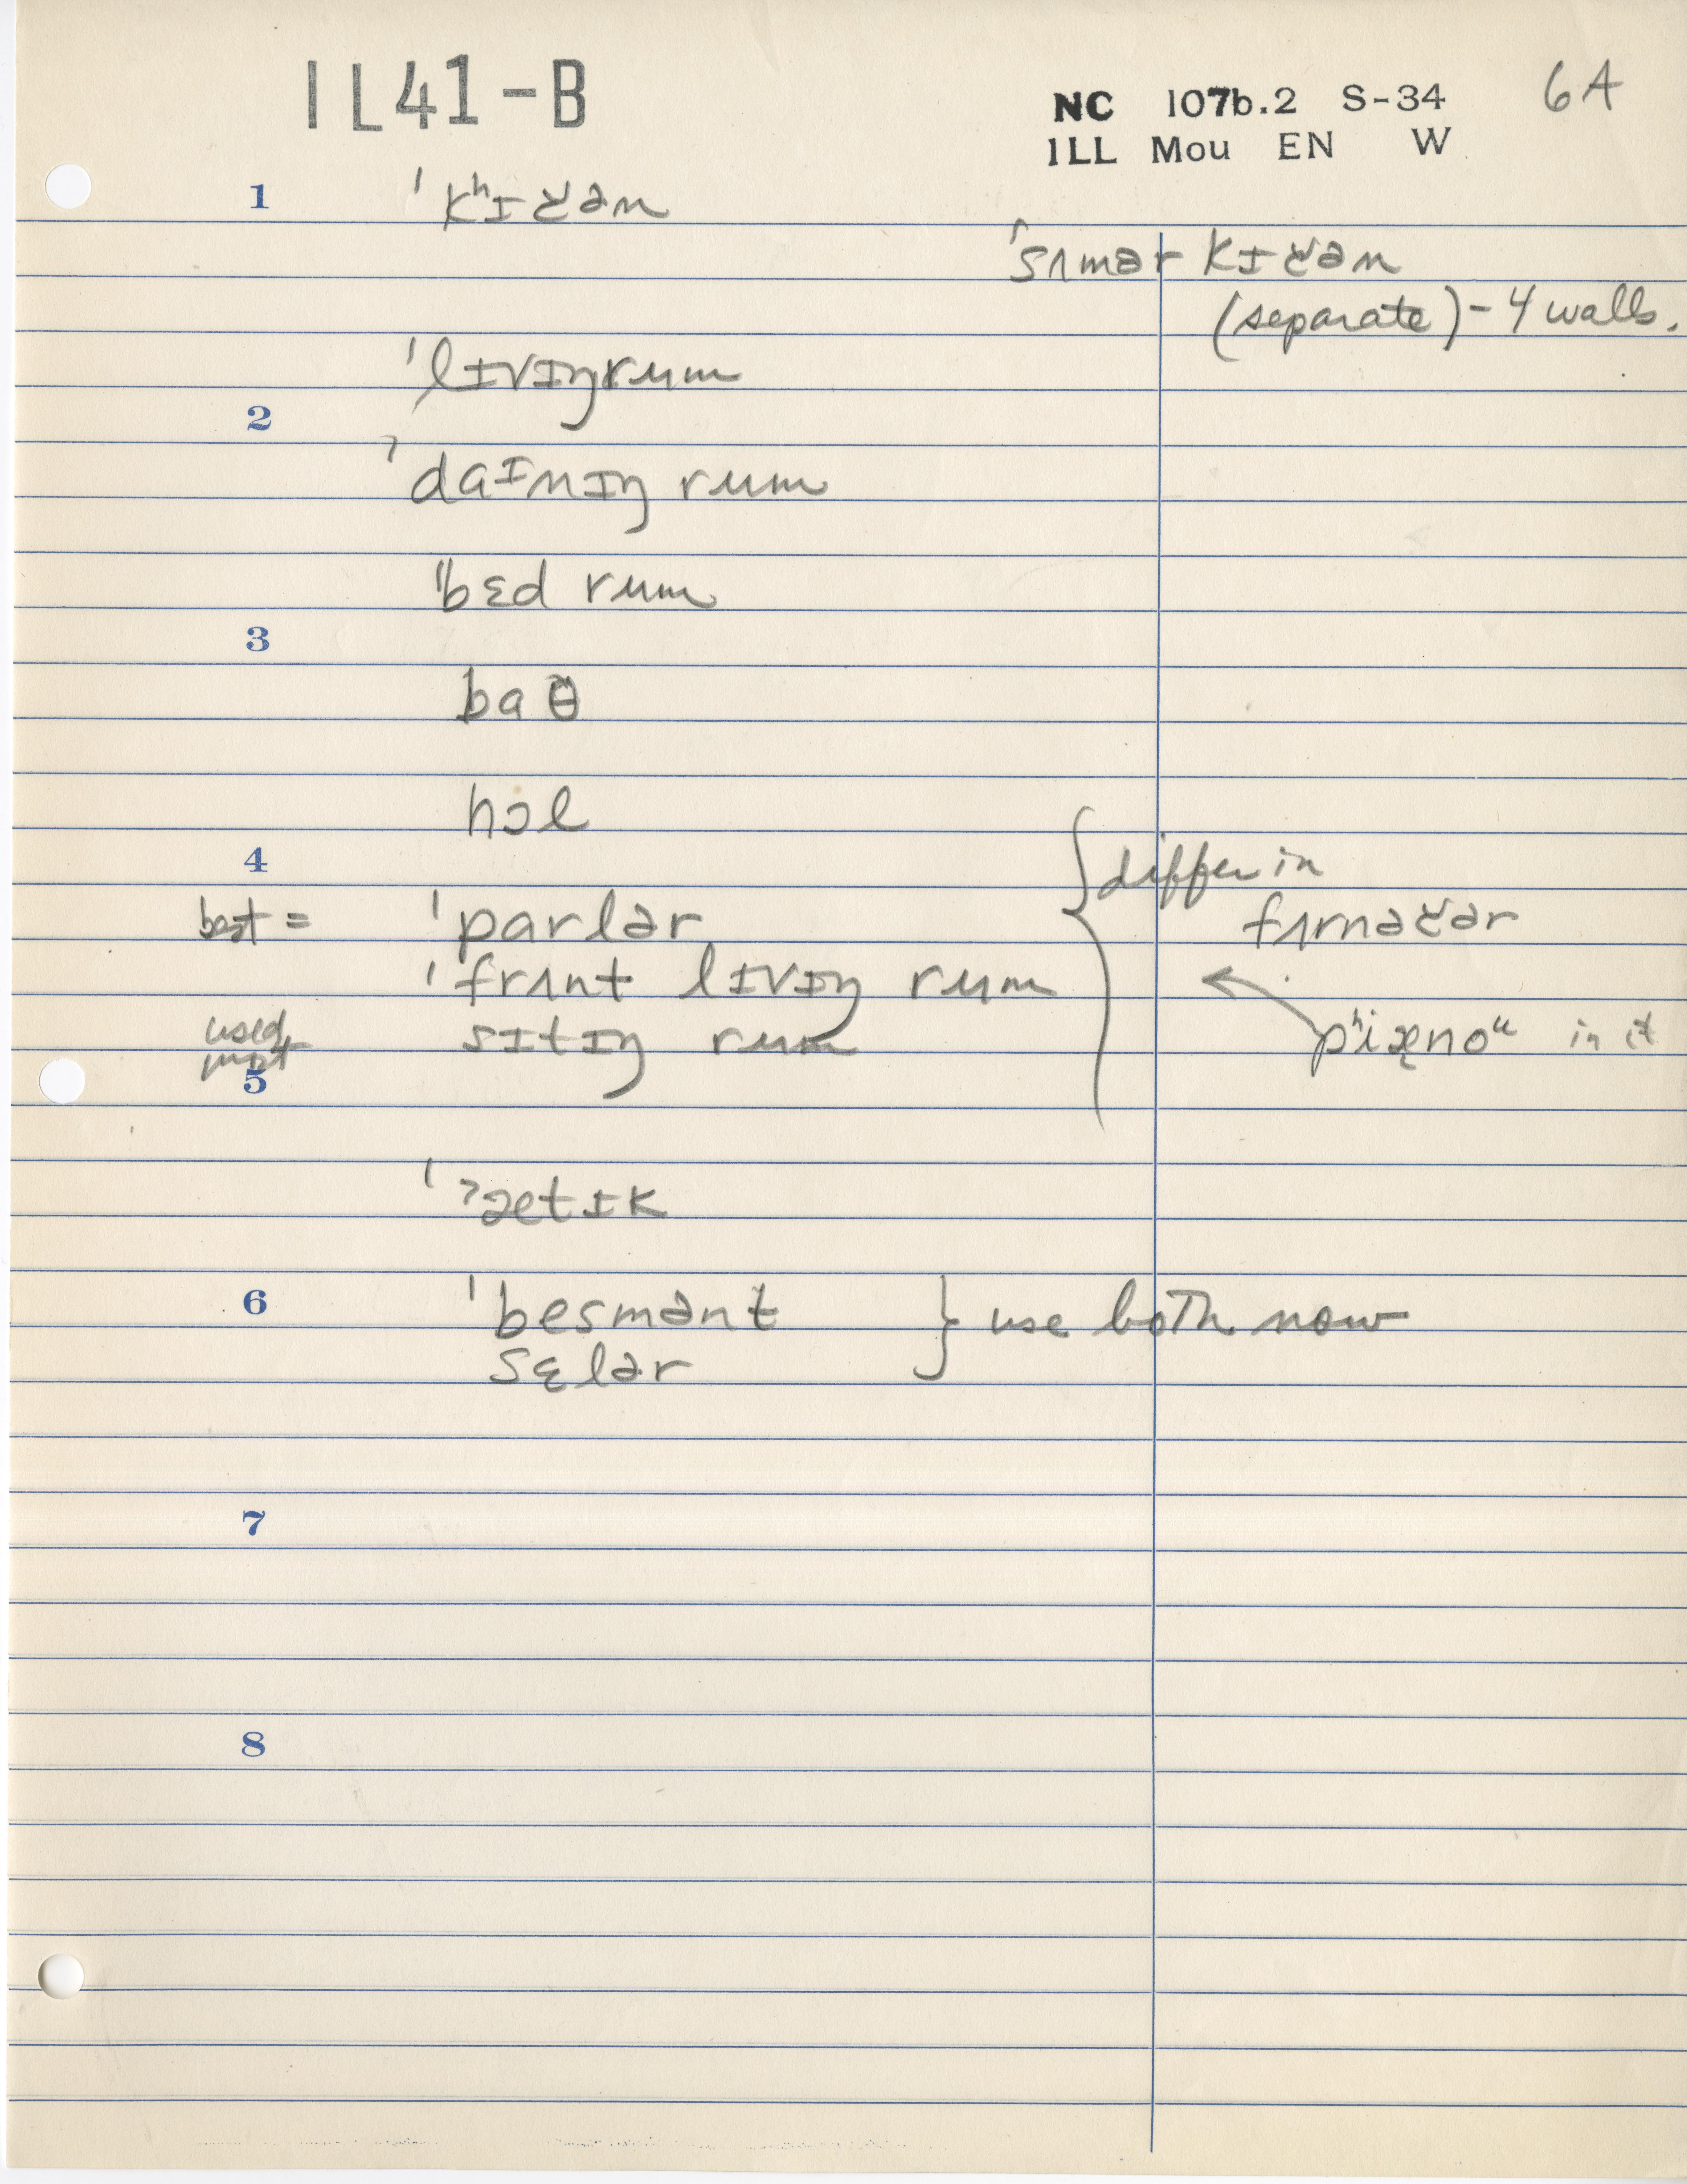 IL41-B
NC 107b.2 S-34 6A
ILL Mou EN W
1 ˈkʰɪčən
ˈsʌmər kɪčən
(separate) - 4 walls.
ˈlɪvɪŋrum
2
ˈdaɪnɪŋ rum
ˈbɛd rum
3
baθ
hɔl
4
differ in
best = ˈparlər
fʌrnəčər
ˈfrʌnt lɪvɪŋ rum
used most sɪtɪŋ rum
pʰiænoᵘ in it
5
ˈʔætɪk
6 ˈbesmənt } use both now
sɛlər
7
8